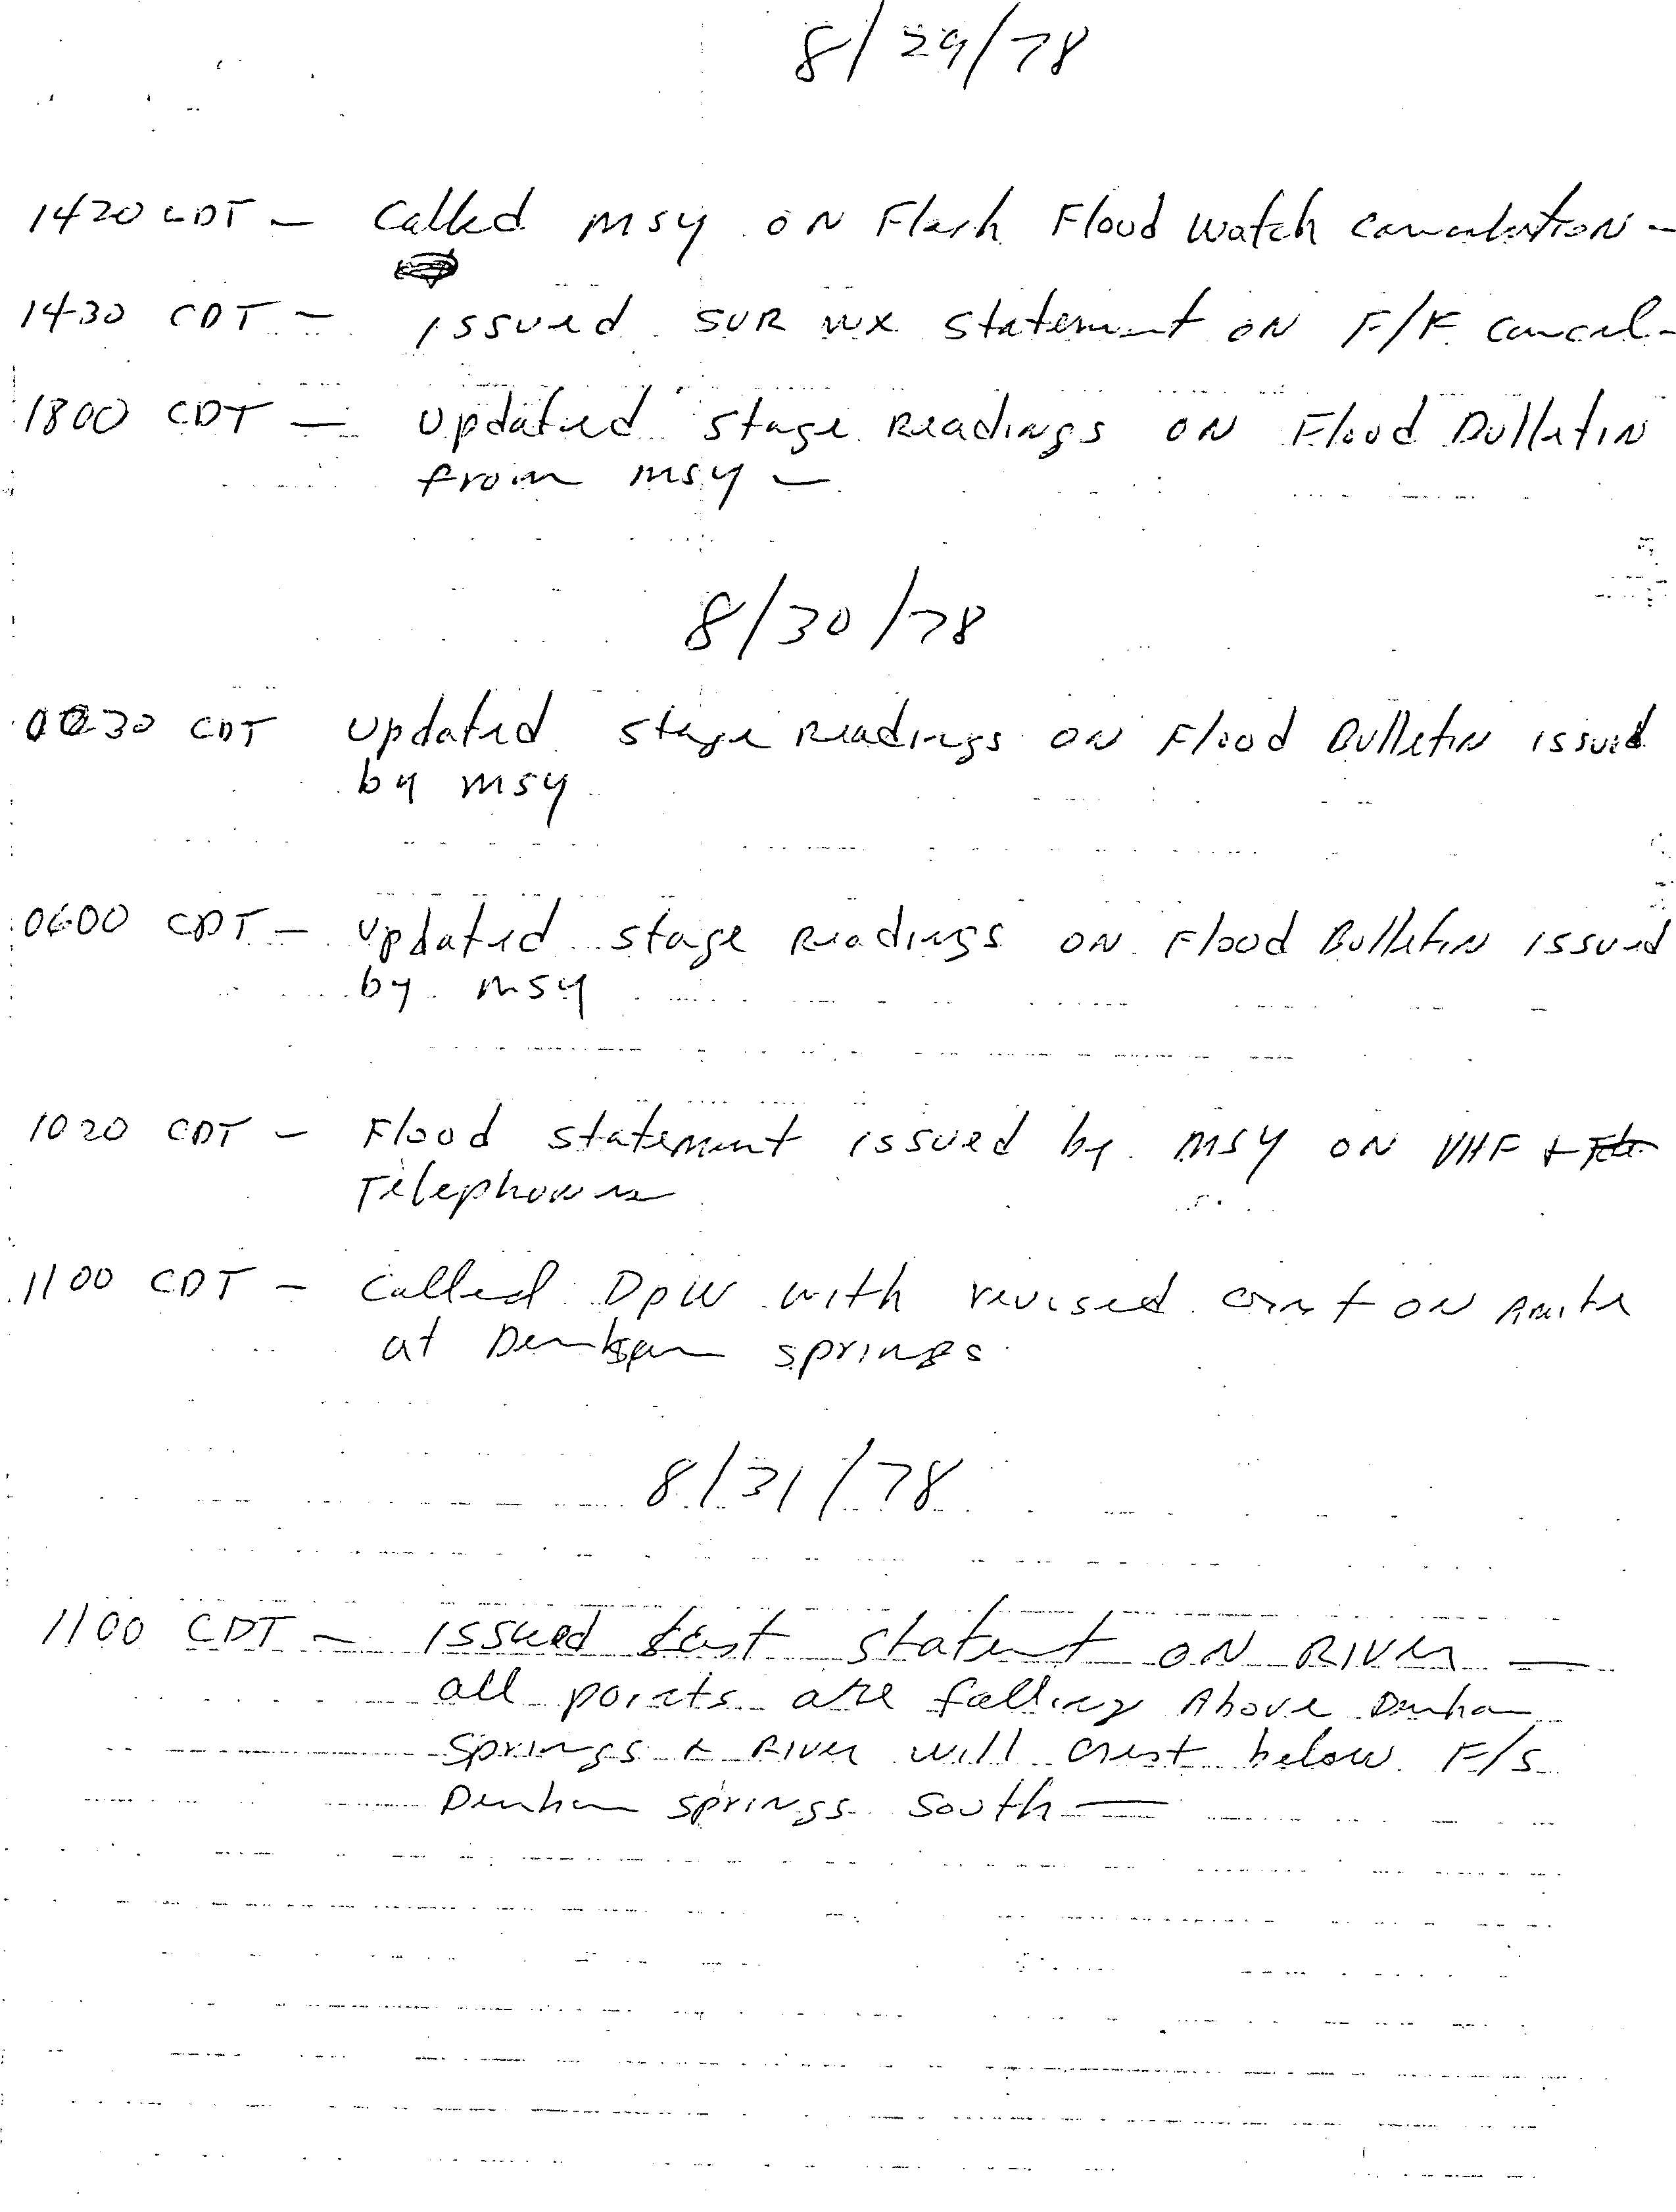 8/29/78
1420 CDT — Called MSY ON Flash Flood Watch Cancelation -
1430 CDT — issued SVR WX Statement ON F/F cancel-
1800 CDT — Updated Stage Readings ON Flood Bulletin
from MSY —
8/30/78
0030 CDT Updated Stage Readings ON Flood Bulletin issued
by MSY
0600 CDT — Updated Stage Readings ON Flood Bulletin issued
by MSY
1020 CDT — Flood Statement issued by MSY ON VHF +
Telephones
1100 CDT — Called DPW with revised crest ON Amite
at Denham Springs
8/31/78
1100 CDT — Issued statement ON RIVER —
all points are falling Above Denham
Springs & River will crest below F/S
Denham Springs South —